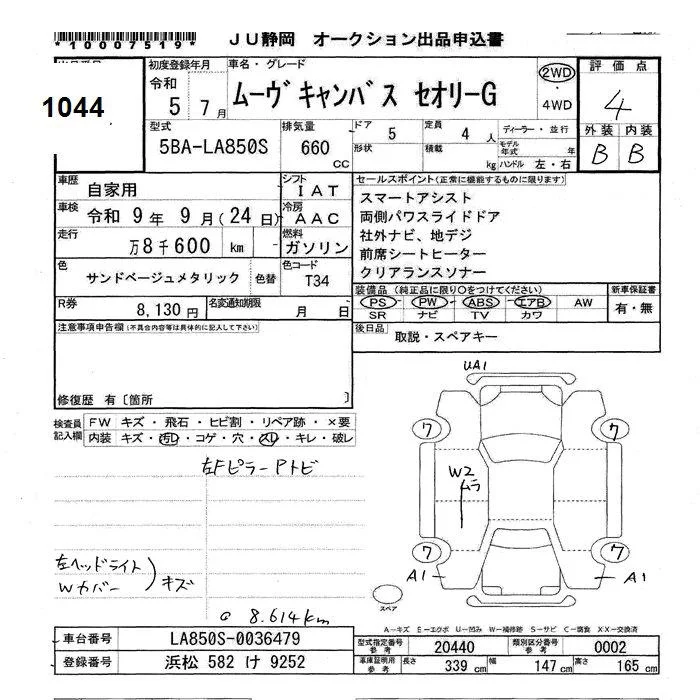 *10007519*
JU静岡 オークション出品申込書
1044
初度登録年月
令和
5 7月
車名・グレード
ムーヴ キャンバス セオリーG
2WD
4WD
評価点
4
外装 内装
B B
型式
5BA-LA850S
排気量
660
CC
ドア 5
形状
定員 4 人
積載 kg
ディーラー・並行
モデル年式 年
ハンドル 左・右
車歴
自家用
シフト
IAT
車検
令和 9年 9月(24日)
冷房
AAC
走行
万8千600 km
燃料
ガソリン
色
サンドベージュメタリック
色替
色コード
T34
R券
8,130円
名変通知期限
月 日
セールスポイント(正常に機能するものに限ります)
スマートアシスト
両側パワスライドドア
社外ナビ、地デジ
前席シートヒーター
クリアランスソナー
装備品 (純正品に限り○をつけてください)
新車保証書
PS PW ABS エアB AW
SR ナビ TV カワ
有・無
後日品
取説・スペアキー
注意事項申告欄(不具合内容等は具体的に記入して下さい)
修復歴 有〔箇所 〕
検査員
記入欄
FW キズ・飛石・ヒビ割・リペア跡・×要
内装 キズ・汚レ・コゲ・穴・スレ・キレ・破レ
左Fピラー Pトビ
左ヘッドライト
Wカバー
キズ
@ 8.614km
UA1
ワ ワ
W2
ムラ
ワ ワ
A1 A1
スペア
A-キズ E-エクボ U-凹み W-補修跡 S-サビ C-腐食 XX-交換済
車台番号
LA850S-0036479
登録番号
浜松 582 け 9252
型式指定番号
参考
20440
類別区分番号
参考
0002
車庫証明用
参考
長さ 339 cm 幅 147 cm 高さ 165 cm